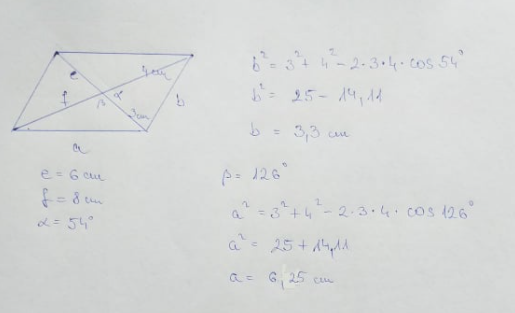 e
4cm
f
α
β
3cm
b
a
e = 6 cm
f = 8 cm
α = 54°
b² = 3² + 4² - 2·3·4·cos 54°
b² = 25 - 14,11
b = 3,3 cm
β = 126°
a² = 3² + 4² - 2·3·4·cos 126°
a² = 25 + 14,11
a = 6,25 cm